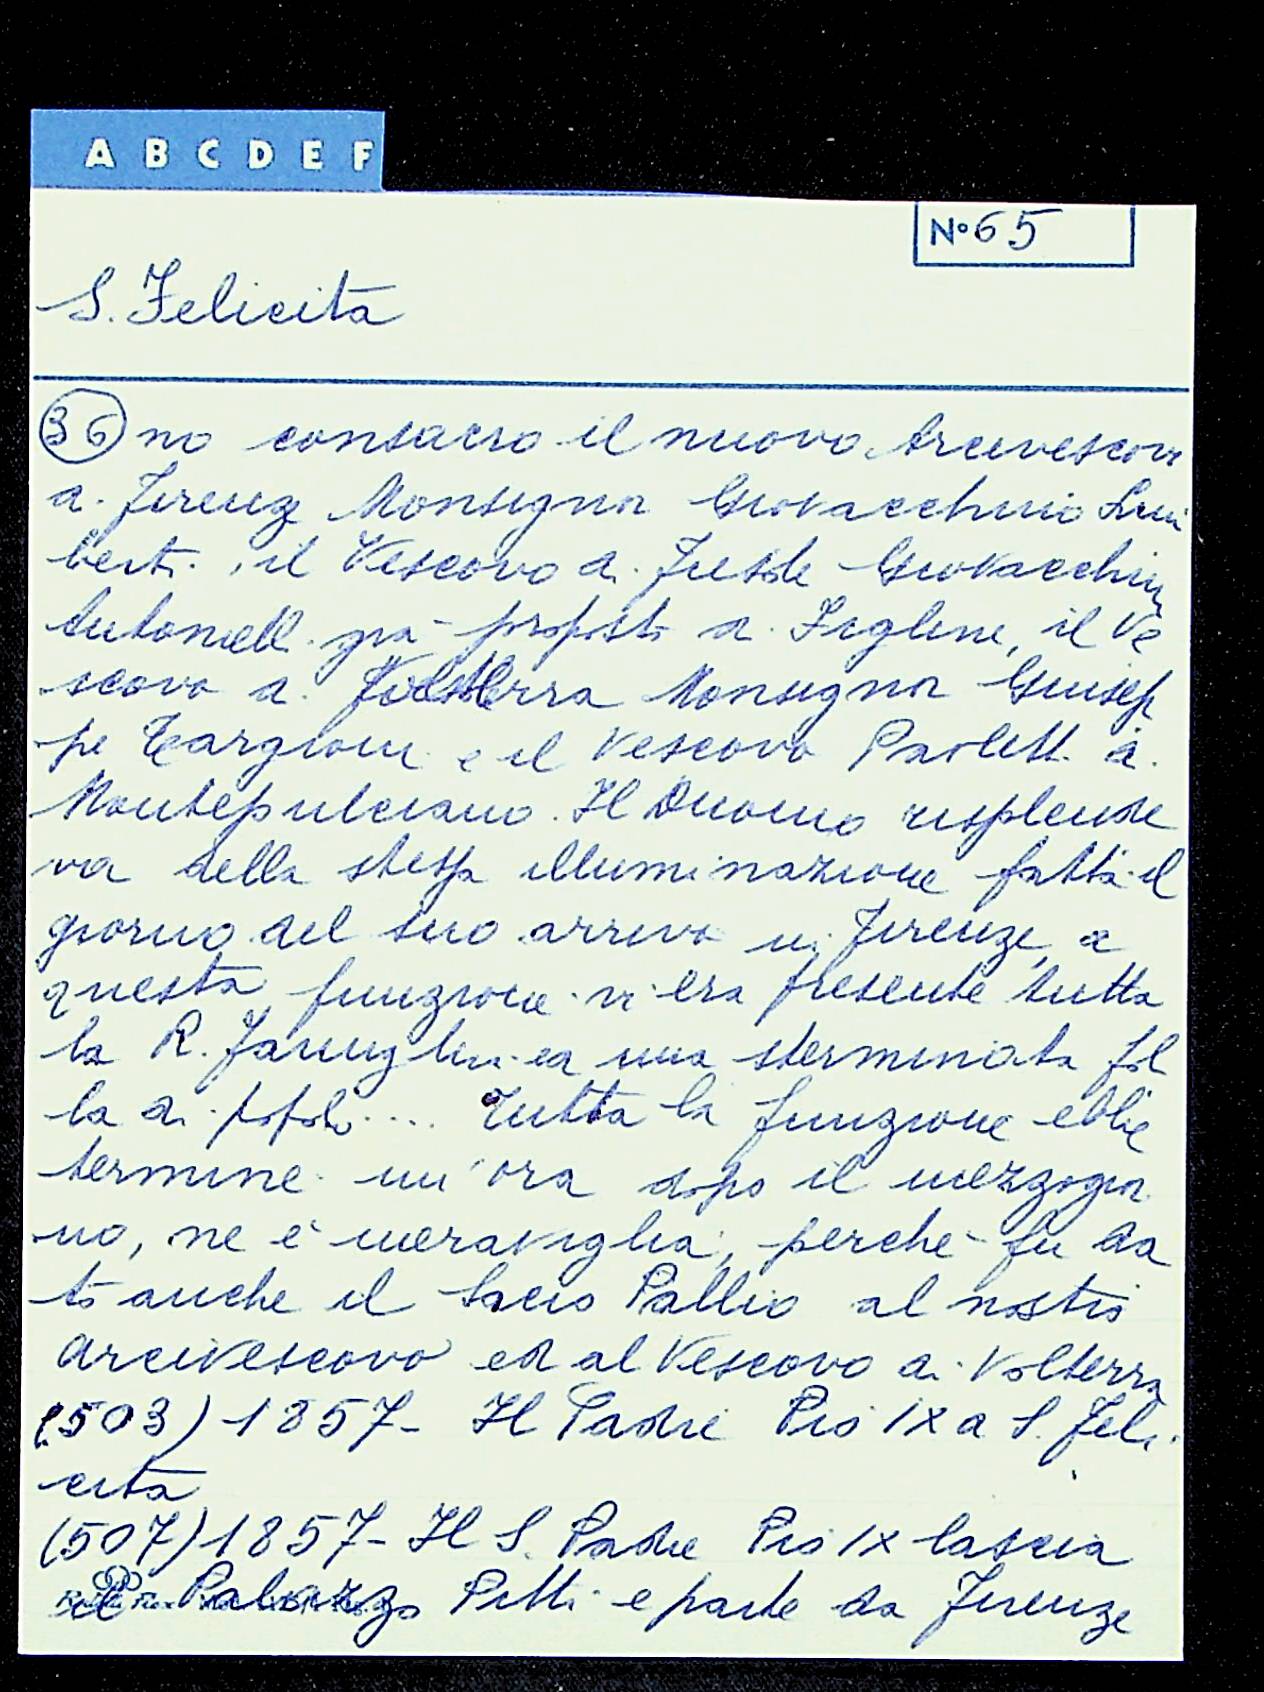 A B C D E F
N° 65
S. Felicita
36 no consacrò il nuovo Arcivescovo
di Firenze Monsignor Giovacchino Lim
berti, il Vescovo di Fiesole Giovacchino
Antonelli già proposto di Figline, il Ve
scovo di Volterra Monsignor Giusep
pe Targioni e il Vescovo Paoletti di
Montepulciano. Il Duomo risplende
va della stessa illuminazione fatta il
giorno del suo arrivo in Firenze, a
questa funzione vi era presente tutta
la R. Famiglia ed una sterminata fol
la di popolo... Tutta la funzione ebbe
termine un'ora dopo il mezzogior
no, ne è meraviglia, perchè fu da
to anche il Sacro Pallio al nostro
Arcivescovo ed al Vescovo di Volterra
(503) 1857- Il Padre Pio IX a S. Feli
cita
(507) 1857- Il S. Padre Pio IX lascia
il Palazzo Pitti e parte da Firenze